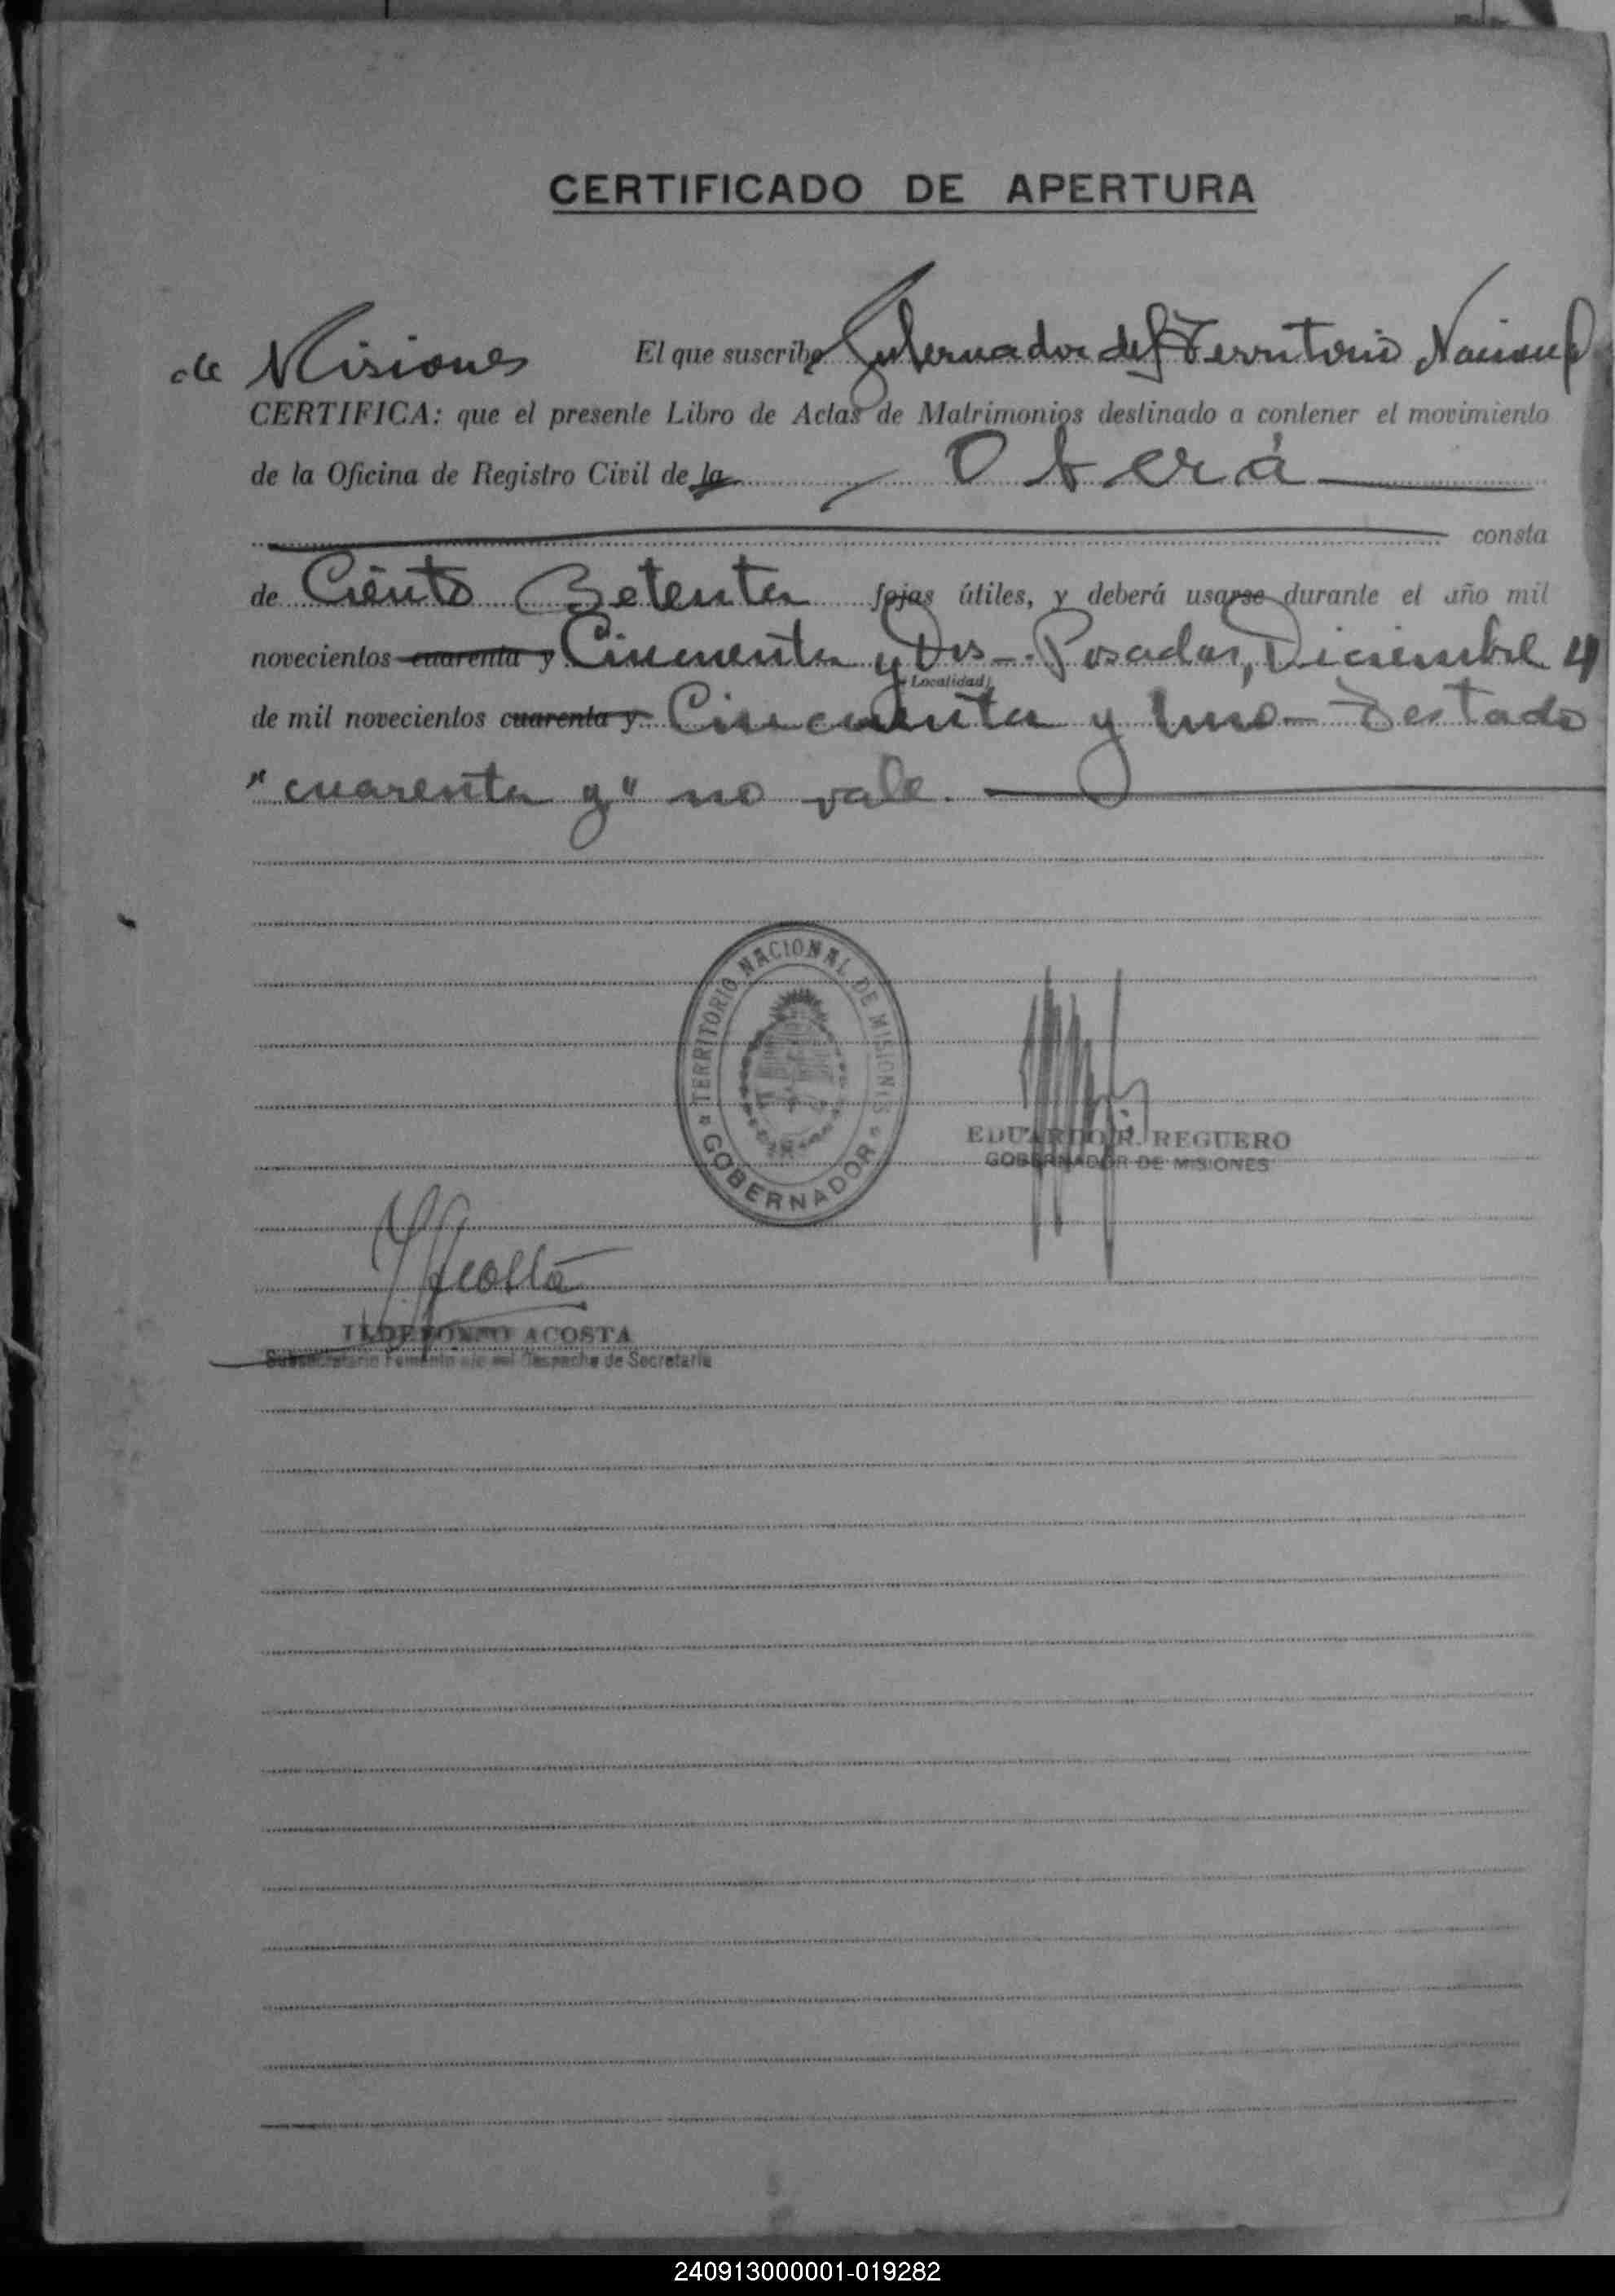 CERTIFICADO DE APERTURA
El que suscribe Gobernador del Territorio Nacional
de Misiones
CERTIFICA: que el presente Libro de Actas de Matrimonios destinado a contener el movimiento
de la Oficina de Registro Civil de la Oberá
consta
de Ciento Setenta fojas útiles, y deberá usarse durante el año mil
novecientos cuarenta y Cincuenta y Dos - Posadas, Diciembre 4
(Localidad)
de mil novecientos cuarenta y Cincuenta y Uno - Testado
"cuarenta y" no vale.
TERRITORIO NACIONAL DE MISIONES
GOBERNADOR
EDUARDO R. REGUERO
GOBERNADOR DE MISIONES
Acosta
ILDEFONSO ACOSTA
Subsecretario Fomento a/c del Despacho de Secretaría
240913000001-019282